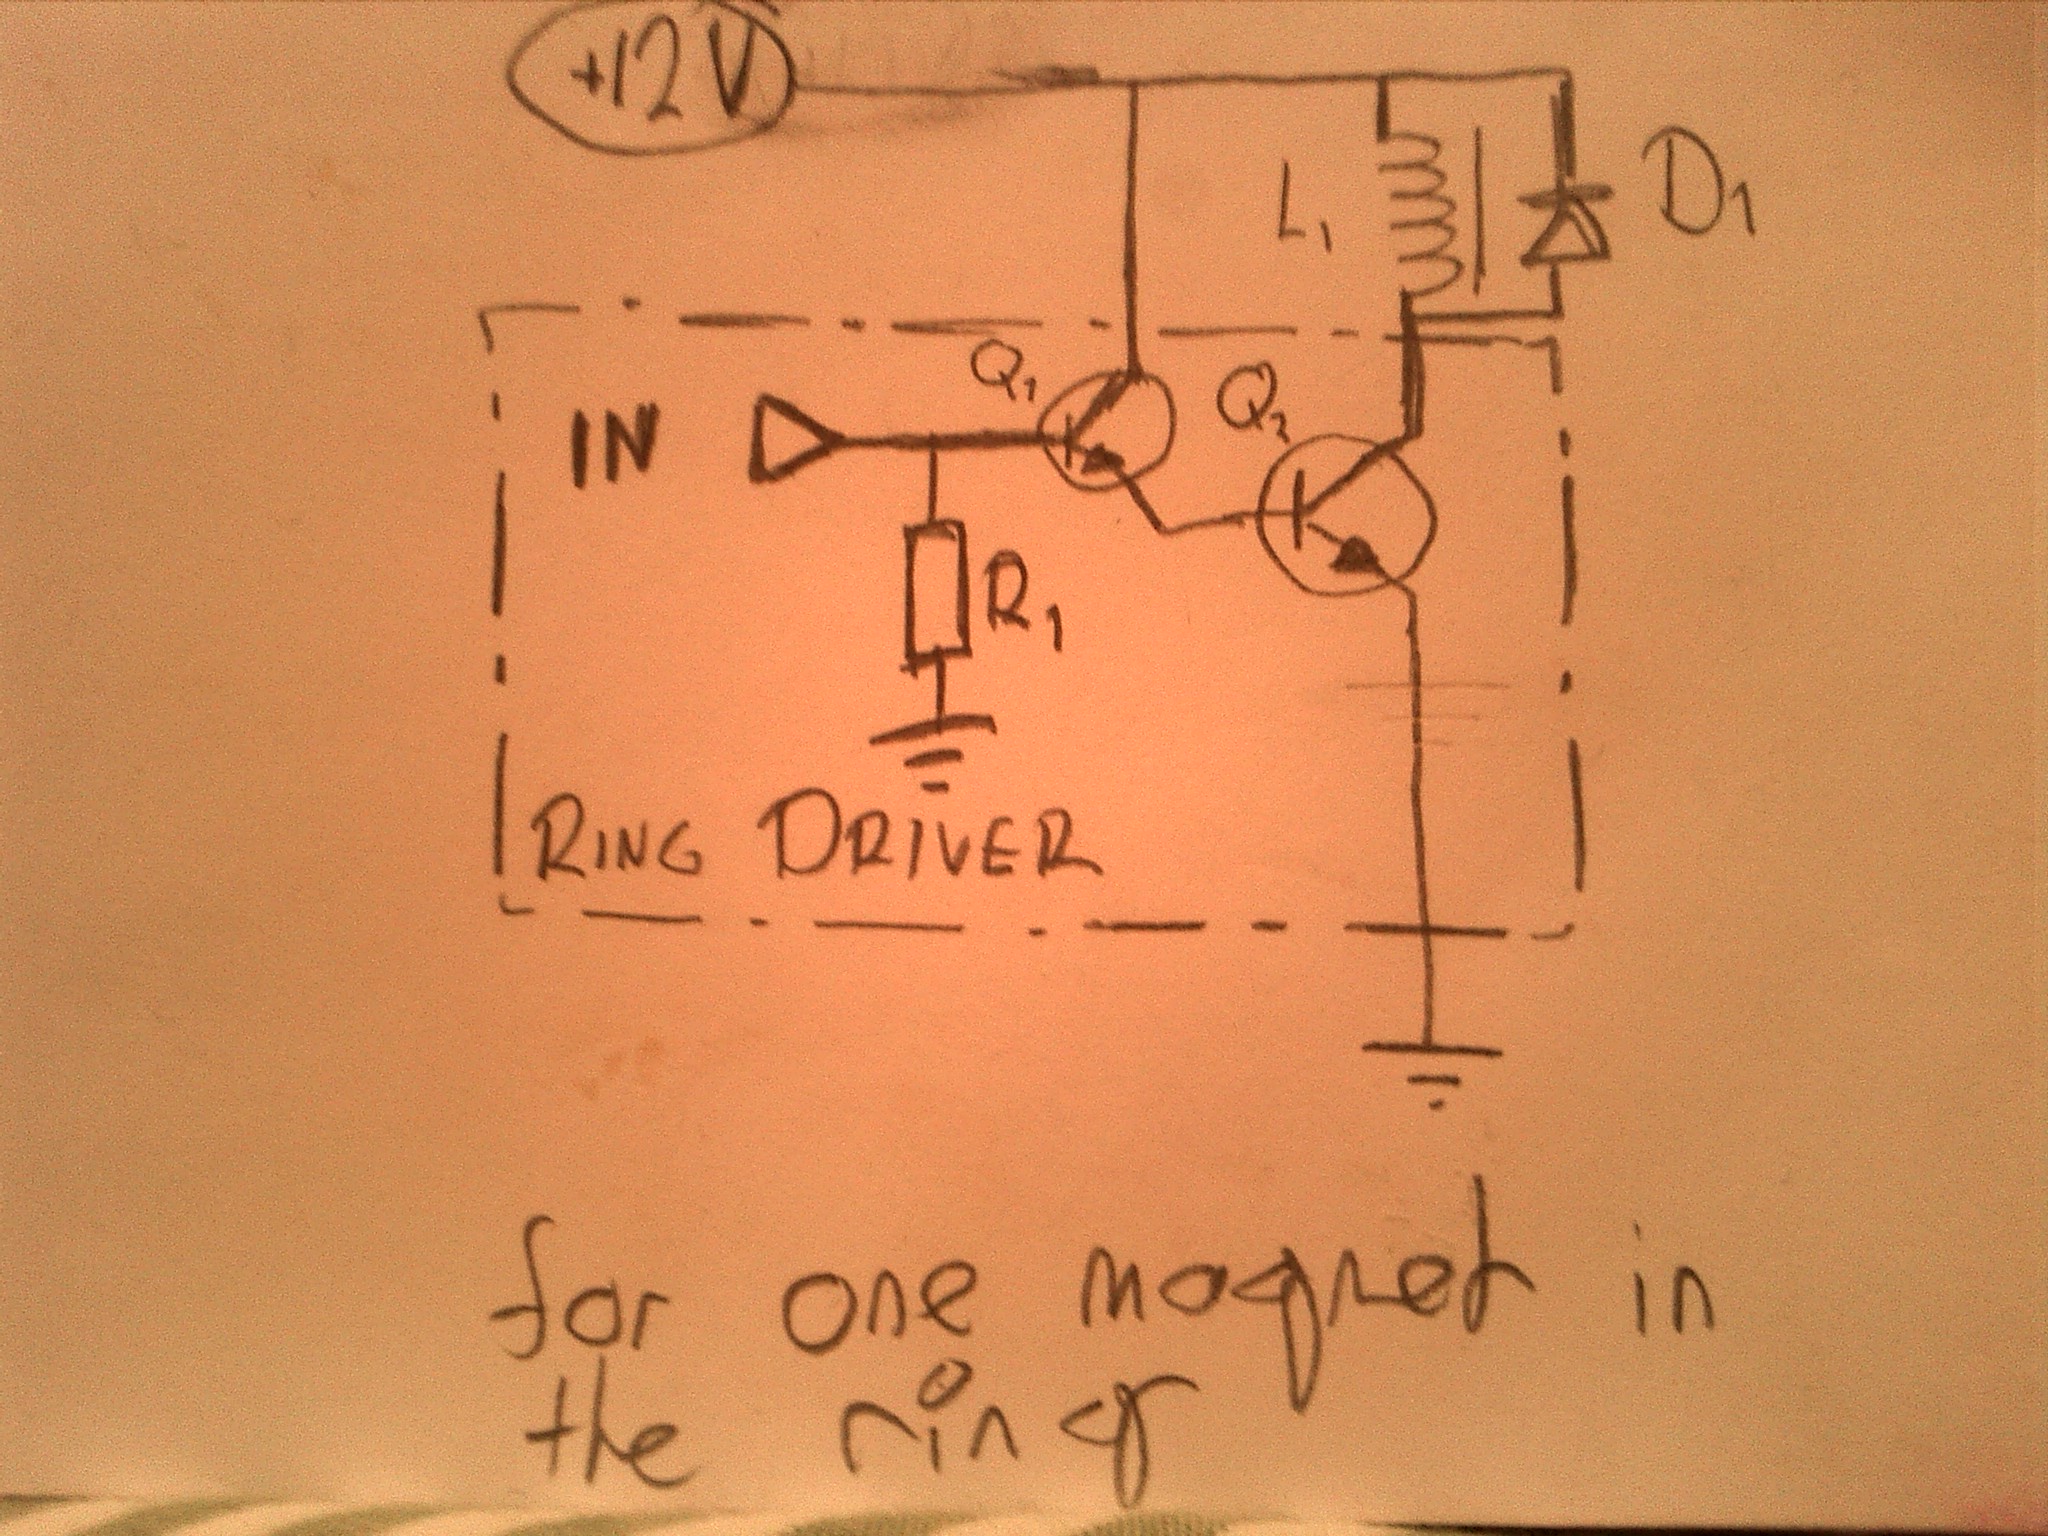 +12V
L1
D1
Q1
Q2
IN
R1
RING DRIVER
for one magnet in
the ring